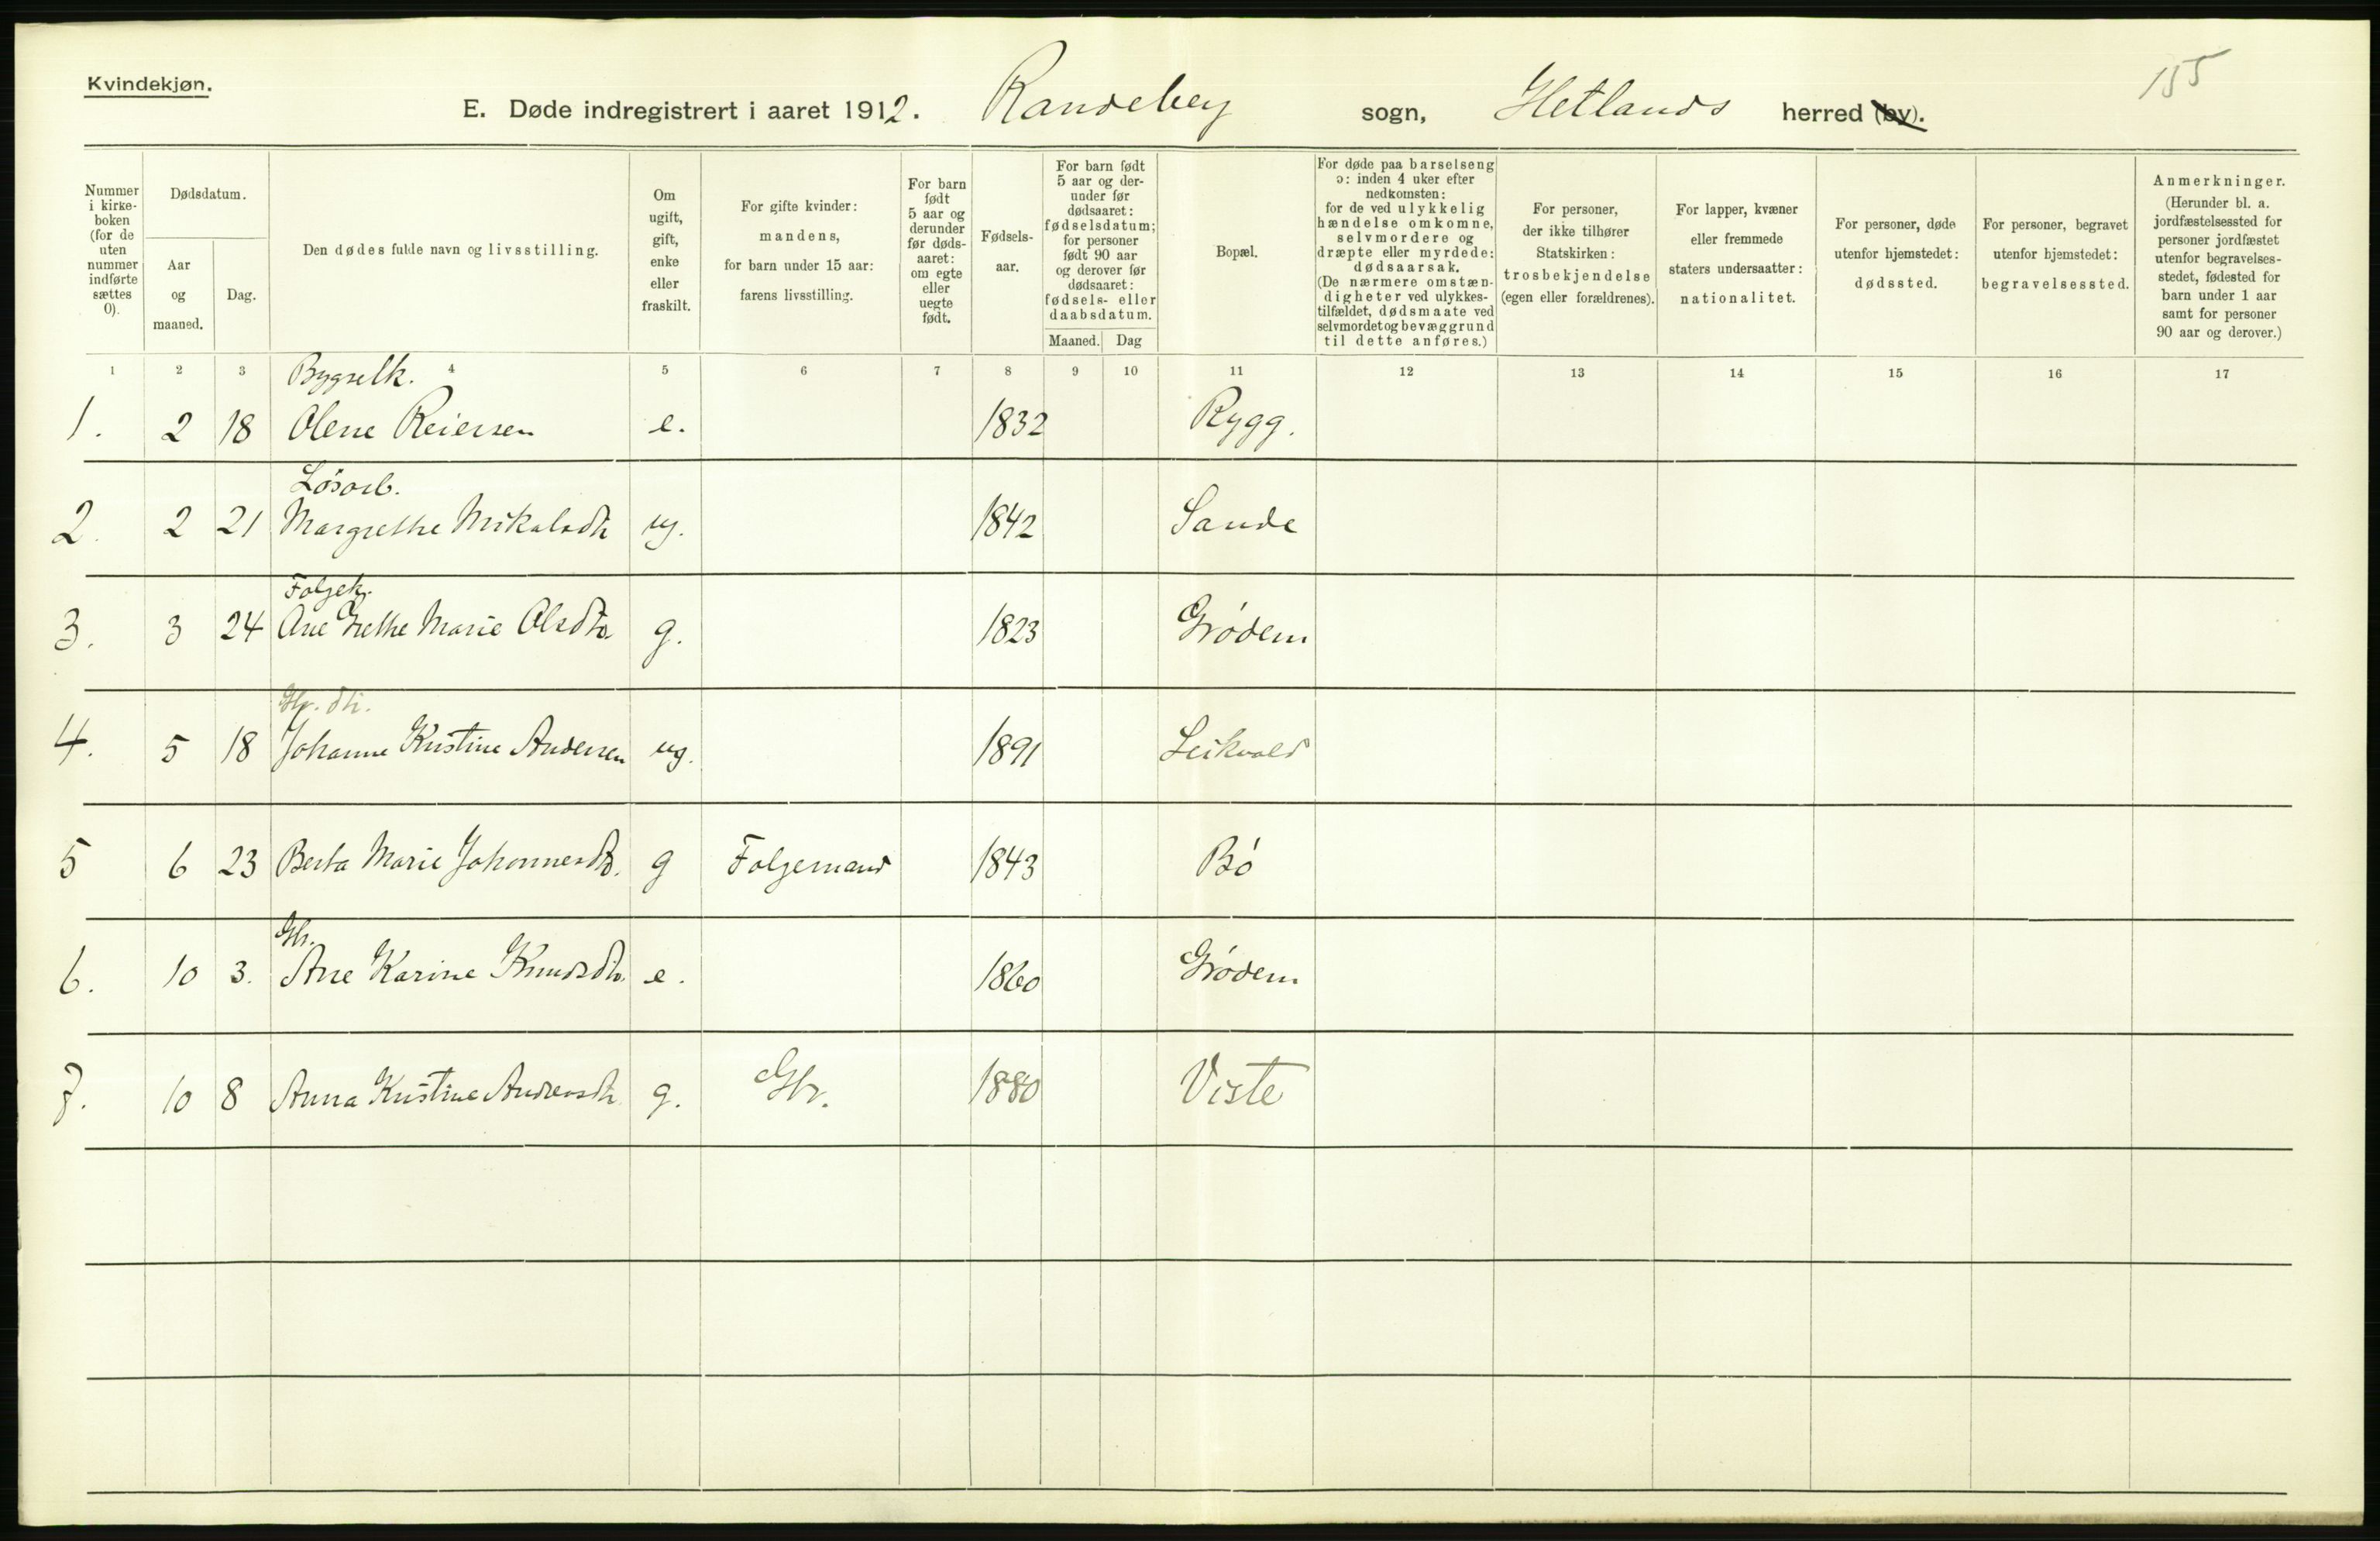 Kvindekjøn.
155
E. Døde indregistrert i aaret 1912. Randeberg sogn, Hetlands herred (by).
Nummer i kirke-boken (for de uten nummer indførte sættes 0).
Dødsdatum.
Aar og maaned.
Dag.
Den dødes fulde navn og livsstilling.
Om ugift, gift, enke eller fraskilt.
For gifte kvinder: mandens, for barn under 15 aar: farens livsstilling.
For barn født 5 aar og derunder før døds-aaret: om egte eller uegte født.
Fødsels-aar.
For barn født 5 aar og der-under før dødsaaret: fødselsdatum; for personer født 90 aar og derover før dødsaaret: fødsels- eller daabsdatum.
Maaned. Dag
Bopæl.
For døde paa barselseng ɔ: inden 4 uker efter nedkomsten: for de ved ulykkelig hændelse omkomne, selvmordere og dræpte eller myrdede: dødsaarsak. (De nærmere omstæn-digheter ved ulykkes-tilfældet, dødsmaate ved selvmordet og bevæggrund til dette anføres.)
For personer, der ikke tilhører Statskirken: trosbekjendelse (egen eller forældrenes).
For lapper, kvæner eller fremmede staters undersaatter: nationalitet.
For personer, døde utenfor hjemstedet: dødssted.
For personer, begravet utenfor hjemstedet: begravelsessted.
Anmerkninger. (Herunder bl. a. jordfæstelsessted for personer jordfæstet utenfor begravelses-stedet, fødested for barn under 1 aar samt for personer 90 aar og derover.)
1 2 3 4 5 6 7 8 9 10 11 12 13 14 15 16 17
Bygselk.
1. 2 18 Olene Reiersen e. 1832 Rygg.
Løsarb.
2. 2 21 Margrethe Mikalsdtr ug. 1842 Sande
Folgek.
3. 3 24 Ane Grethe Marie Olsdtr. g. 1823 Grødem
Gbr. dtr.
4. 5 18 Johanne Kristine Andersen ug. 1891 Leikvold
5 6 23 Berta Marie Johannesdtr. g Folgemand 1843 Bø
Gbr.
6. 10 3. Ane Karine Knudsdtr. e. 1860 Grødem
7. 10 8 Anna Kristine Andersdtr. g. Gbr. 1880 Viste